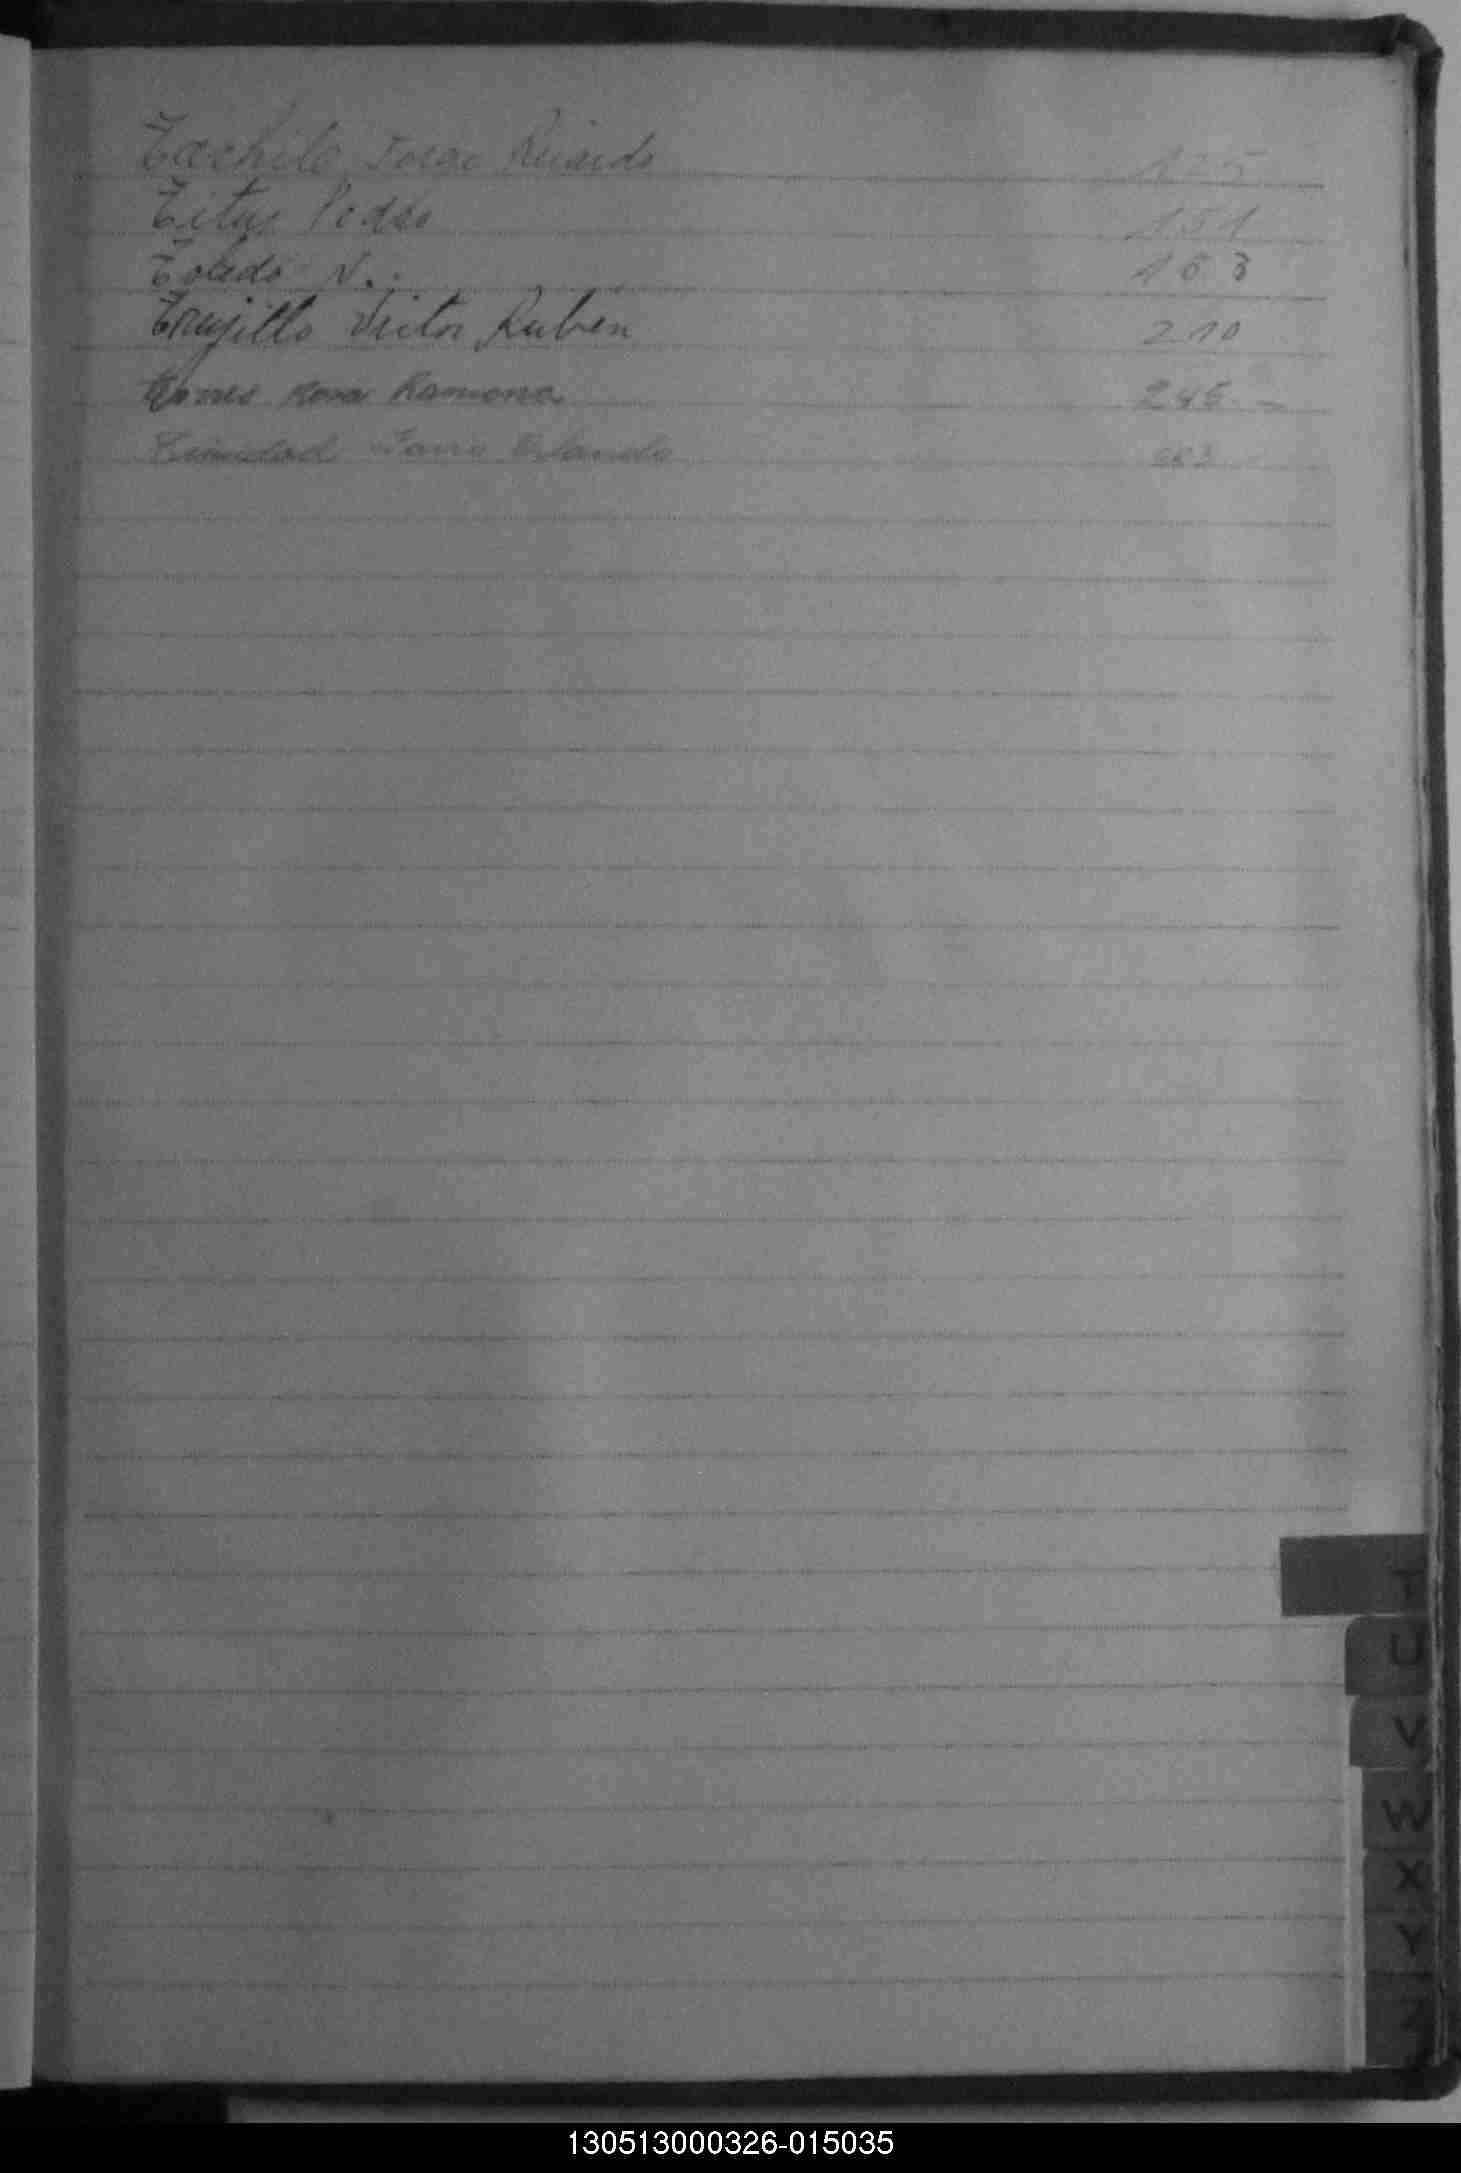 Tachile Jorge Ricardo 125
Titus Pedro 151
Toledo N.. 163
Trujillo Victor Ruben 210
Torres Rosa Ramona 245
Trinidad Orlando
T
U
V
W
X
Y
Z
130513000326-015035